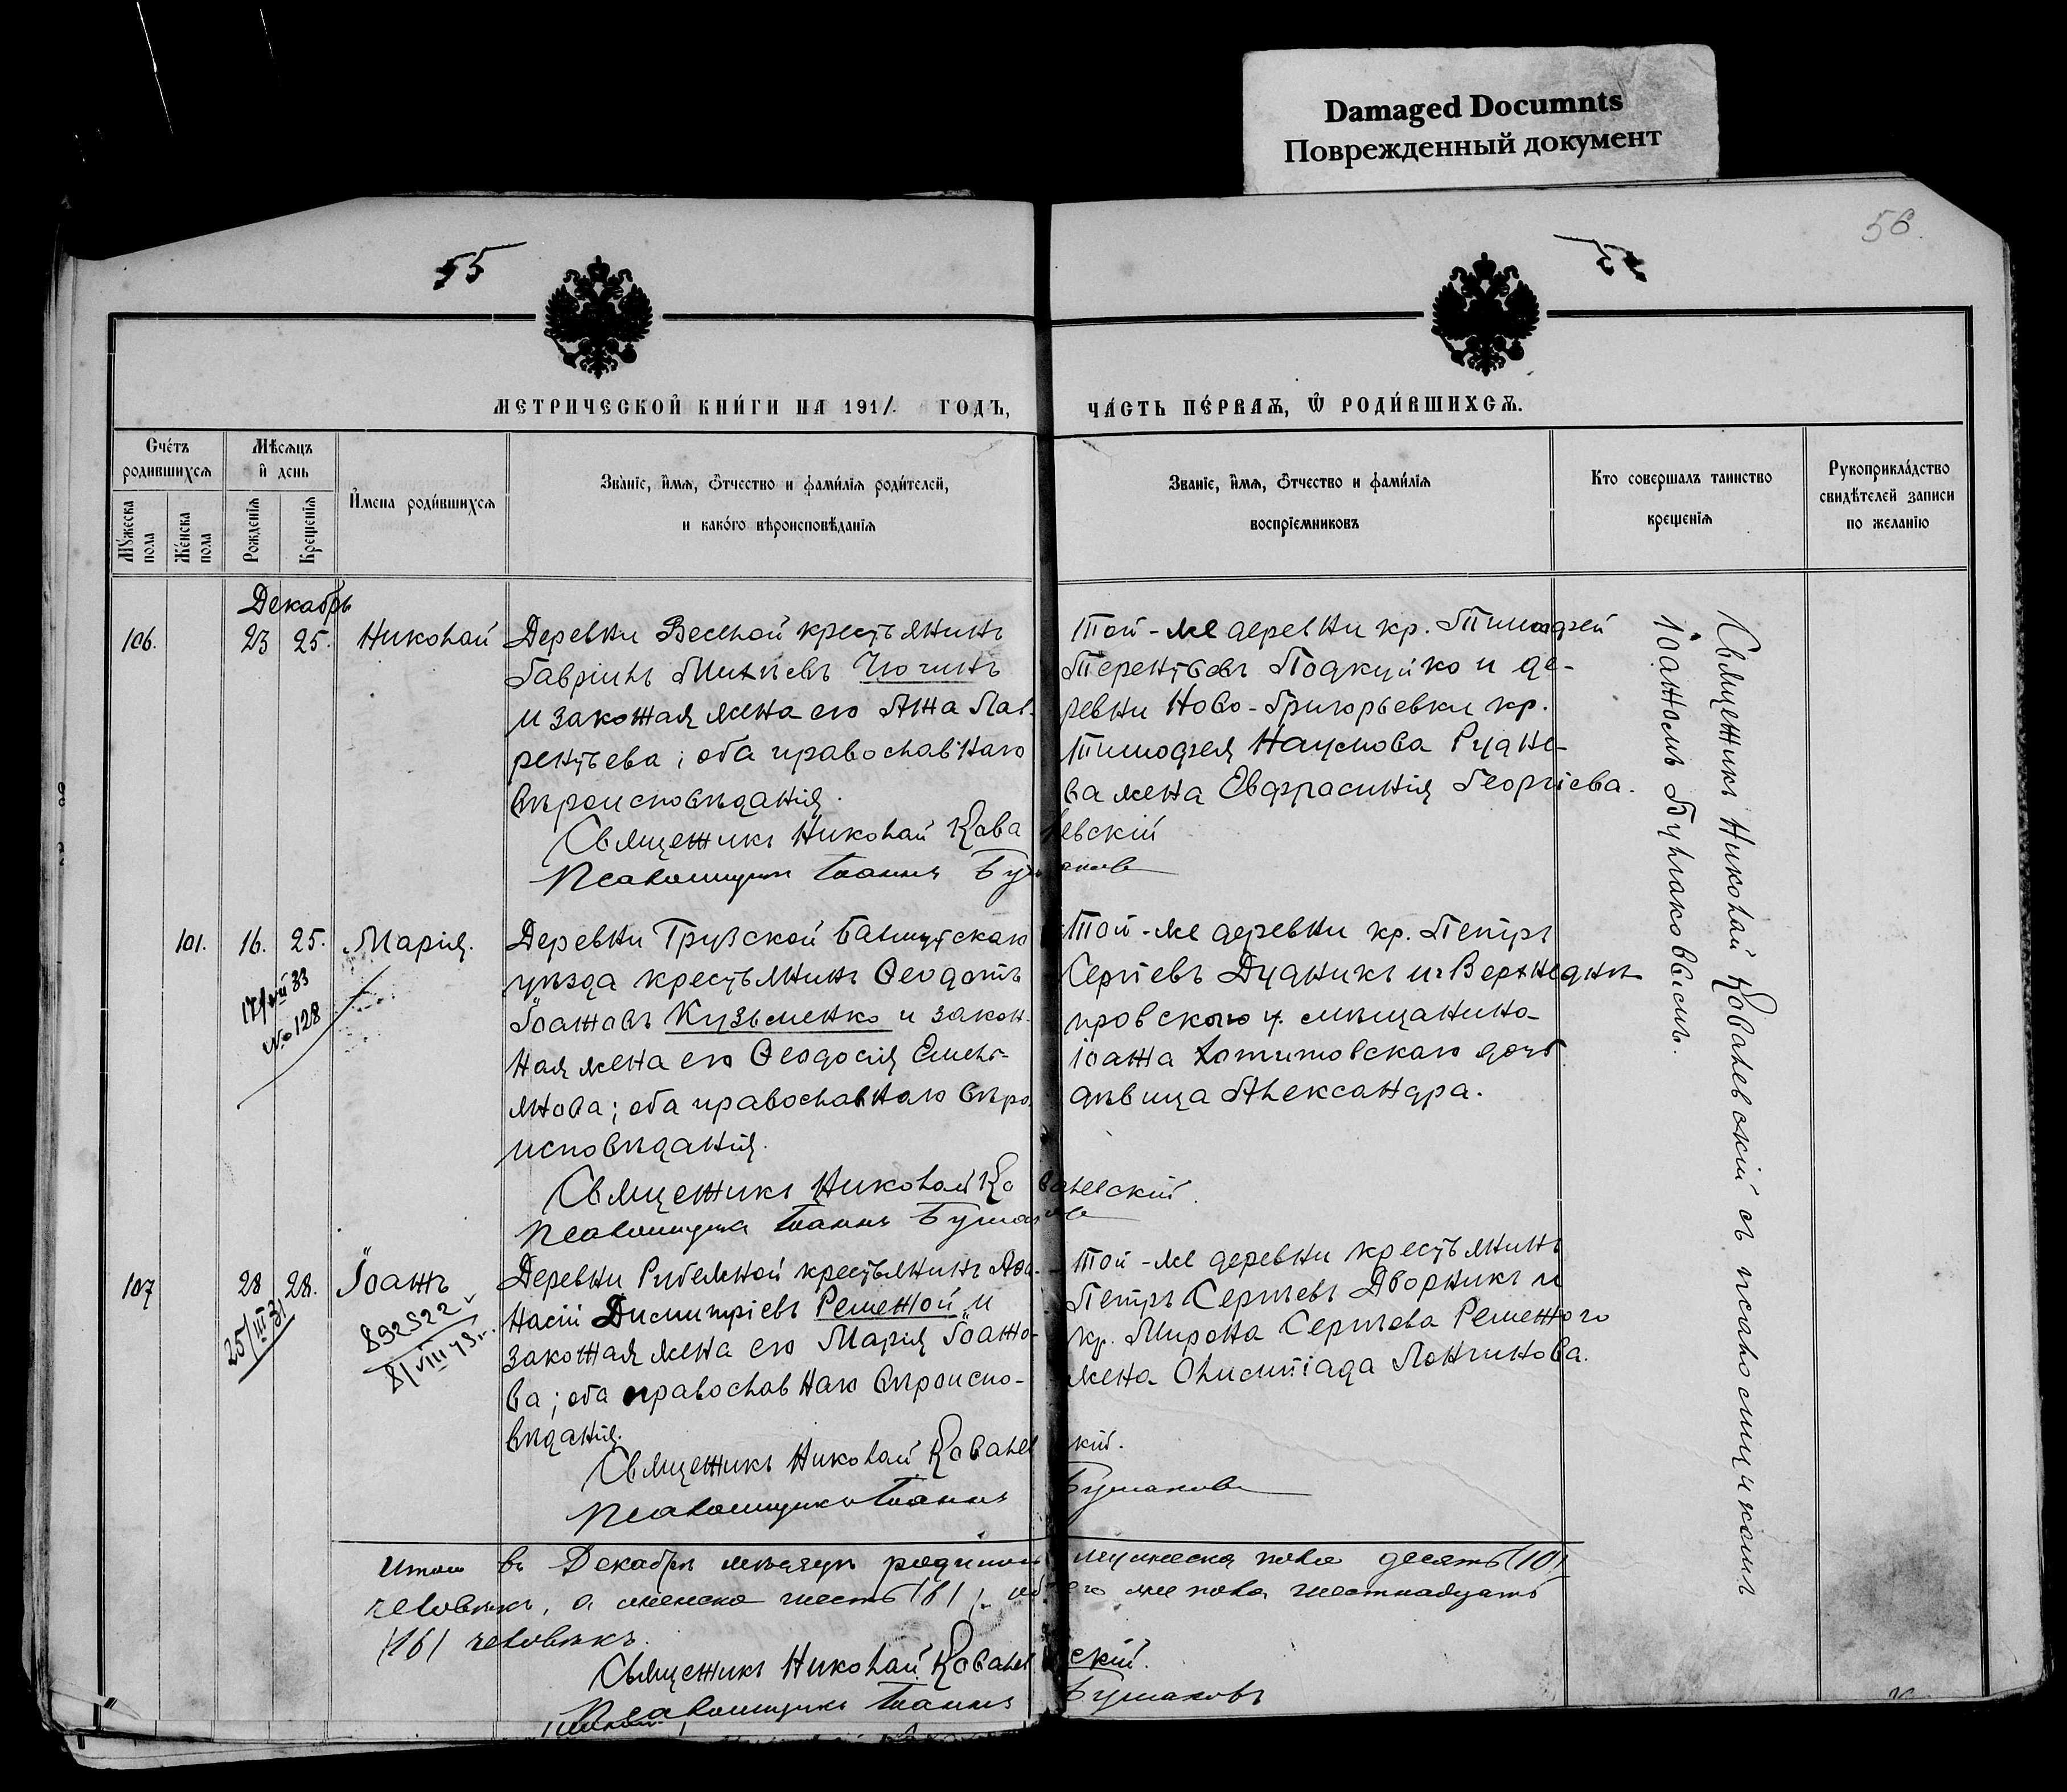 Damaged Documnts
Поврежденный документ
56.
55
МЕТРИЧЕСКОЙ КНИ́ГИ НА 1911. ГОДЪ,
ЧА́СТЬ ПЕ́РВАѦ, Ѿ РОДИ́ВШИХСѦ.
Сче́тъ родившихсѧ
Мꙋ́жеска пола
Же́нска пола
Мѣсѧцъ и҆ день
Рожденїѧ
Крещенїѧ
И҆мена роди́вшихсѧ
Зва́нїе, и҆мѧ, ѻ҆́тчество и фами́лїѧ роди́телей,
и како́го вѣроисповѣ́данїѧ
Званїе, и҆мѧ, ѻ҆́тчество и фами́лїѧ
воспрїемниковъ
Кто совершалъ таинство
крещенїѧ
Рукоприкла́дство
свидѣ́телей записи
по желанїю
Декабрь
106.
23
25.
Николай
Деревни Веселой крестьянинъ
Гавріилъ
и законная жена его Анна Лав-
рентьева; оба православнаго
вѣроисповѣданія.
Священникъ Николай Ковалевскій
Псаломщикъ Іоаннъ Булмаковъ
Той-же деревни кр. Тимофей
Терентьевъ Подкуйко и де-
ревни Ново-Григорьевки кр.
Тимофея Наумова Рудне-
ва жена Евфрасинія Георгіева.
101.
16.
25.
Марія.
17/VII 33
№ 128
Деревни Грузской Бахмутскаго
уѣзда крестьянинъ Ѳеодотъ
Іоанновъ Кузьменко и закон-
ная жена его Ѳеодосія Емель-
янова; оба православнаго вѣро-
исповѣданія.
Священникъ Николай Ковалевскій.
Псаломщикъ Іоаннъ
Той-же деревни кр. Петръ
Сергѣевъ Дудникъ и Верхнеднѣ-
провскаго у. мѣщанина
Іоанна Хотитовскаго дочь
дѣвица Александра.
107
28
28.
Іоаннъ
25/III 31
892522
8/VIII 43 г.
Деревни Рубежной крестьянинъ Афа-
насій Димитріевъ Ременной и
законная жена его Марія Іоанно-
ва; оба православнаго вѣроиспо-
вѣданія.
Священникъ Николай Ковалевскій.
Псаломщикъ Іоаннъ
Той-же деревни крестьянинъ
Петръ Сергѣевъ Дворникъ и
кр. Мирона Сергѣева Ременного
жена Олимпіада Лонгинова.
Священникъ Николай Ковалевскій съ псаломщикомъ
Іоанномъ
Итого въ Декабрѣ мѣсяцѣ родилось мужеска пола десять (10)
человѣкъ, а женска шесть (6); обоего же пола шестнадцать
(16) человѣкъ.
Священникъ Николай Ковалевскій.
Псаломщикъ Іоаннъ